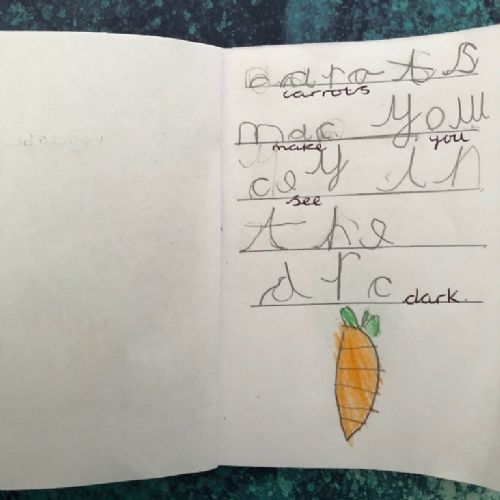 carots
carrots
mac you
make you
cey in
see
the
drc dark.